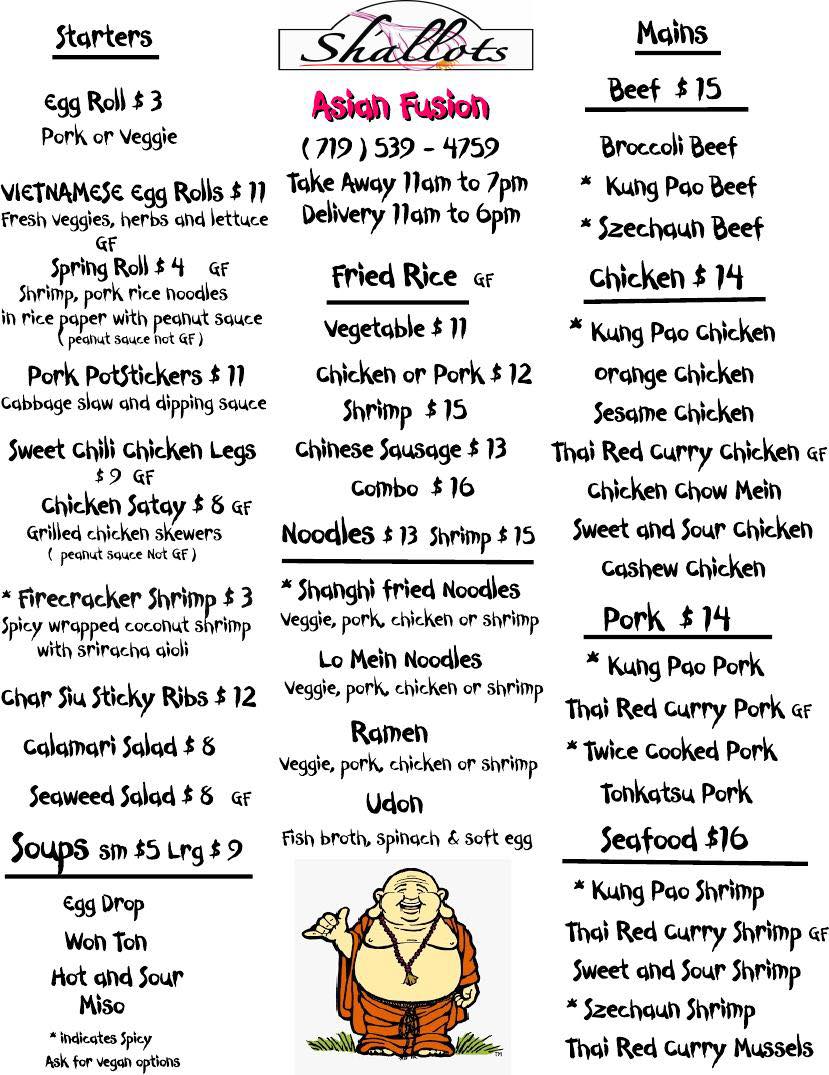 Starters
Egg Roll $ 3
Pork or Veggie
VIETNAMESE Egg Rolls $ 11
Fresh veggies, herbs and lettuce
GF
Spring Roll $ 4 GF
Shrimp, pork rice noodles
in rice paper with peanut sauce
( peanut sauce not GF )
Pork PotStickers $ 11
Cabbage slaw and dipping sauce
Sweet Chili Chicken Legs
$ 9 GF
Chicken Satay $ 8 GF
Grilled chicken skewers
( peanut sauce Not GF )
* Firecracker Shrimp $ 3
Spicy wrapped coconut shrimp
with sriracha aioli
Char Siu Sticky Ribs $ 12
Calamari Salad $ 8
Seaweed Salad $ 8 GF
Soups sm $5 Lrg $ 9
Egg Drop
Won Ton
Hot and Sour
Miso
* indicates Spicy
Ask for vegan options
Shallots
Asian Fusion
( 719 ) 539 - 4759
Take Away 11am to 7pm
Delivery 11am to 6pm
Fried Rice GF
Vegetable $ 11
Chicken or Pork $ 12
Shrimp $ 15
Chinese Sausage $ 13
Combo $ 16
Noodles $ 13 Shrimp $ 15
* Shanghi fried Noodles
Veggie, pork, chicken or shrimp
Lo Mein Noodles
Veggie, pork, chicken or shrimp
Ramen
Veggie, pork, chicken or shrimp
Udon
Fish broth, spinach & soft egg
TM
Mains
Beef $ 15
Broccoli Beef
* Kung Pao Beef
* Szechaun Beef
Chicken $ 14
* Kung Pao Chicken
Orange Chicken
Sesame Chicken
Thai Red Curry Chicken GF
Chicken Chow Mein
Sweet and Sour Chicken
Cashew Chicken
Pork $ 14
* Kung Pao Pork
Thai Red Curry Pork GF
* Twice Cooked Pork
Tonkatsu Pork
Seafood $16
* Kung Pao Shrimp
Thai Red Curry Shrimp GF
Sweet and Sour Shrimp
* Szechaun Shrimp
Thai Red Curry Mussels